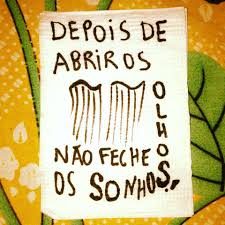 DEPOIS DE
ABRIR OS
OLHOS
NÃO FECHE
OS SONHOS,